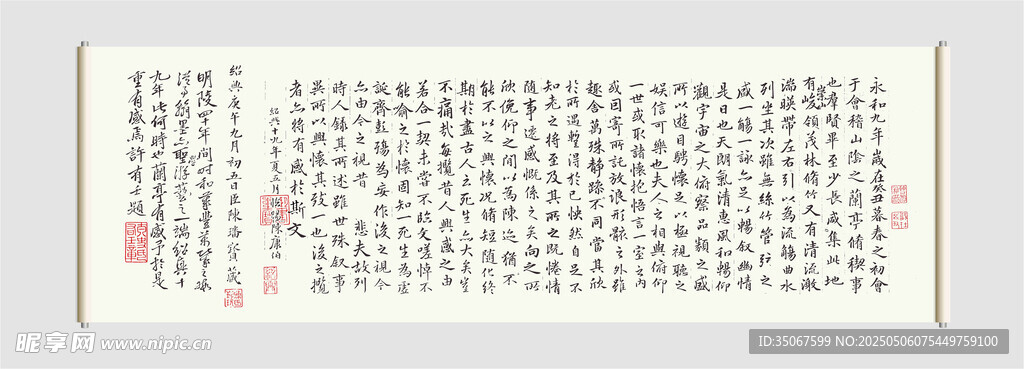 永和九年歲在癸丑暮春之初會
于會稽山陰之蘭亭脩稧事
也羣賢畢至少長咸集此地
有崇山峻領茂林脩竹又有清流激
湍暎帶左右引以為流觴曲水
列坐其次雖無絲竹管弦之
盛一觴一詠亦足以暢叙幽情
是日也天朗氣清惠風和暢仰
觀宇宙之大俯察品類之盛
所以遊目騁懷足以極視聽之
娛信可樂也夫人之相與俯仰
一世或取諸懷抱悟言一室之內
或因寄所託放浪形骸之外雖
趣舍萬殊靜躁不同當其欣
於所遇暫得於己怏然自足不
知老之將至及其所之既惓情
隨事遷感慨係之矣向之所
欣俛仰之間以為陳迹猶不
能不以之興懷況脩短隨化終
期於盡古人云死生亦大矣豈
不痛哉每攬昔人興感之由
若合一契未嘗不臨文嗟悼不
能喻之於懷固知一死生為虛
誕齊彭殤為妄作後之視今
亦由今之視昔 悲夫故列
時人錄其所述雖世殊叙事
異所以興懷其致一也後之攬
者亦將有感於斯文
紹興十九年夏五月 陳康伯
紹興庚午九月初五日臣陳璠寶藏
九年此何時也蘭亭有感予於是
重有感焉許有壬題
昵享网 www.nipic.cn
ID:35067599 NO:20250506075449759100